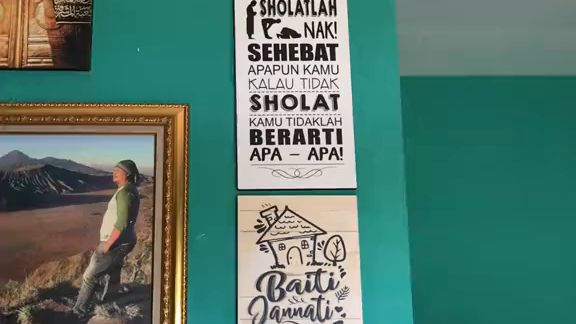 SHOLATLAH
NAK!
SEHEBAT
APAPUN KAMU
KALAU TIDAK
SHOLAT
KAMU TIDAKLAH
BERARTI
APA – APA!
Baiti
Jannati